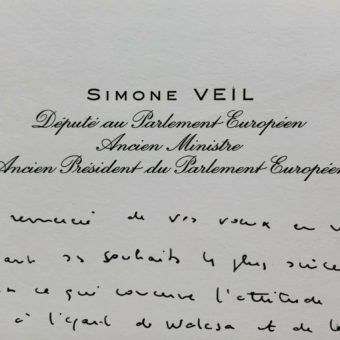 SIMONE VEIL
Député au Parlement Européen
Ancien Ministre
Ancien Président du Parlement Européen
remercié de vos vœux en v
ant ses souhaits les plus sincè
ce qui concerne l'attitude
à l'égard de Walesa et de le